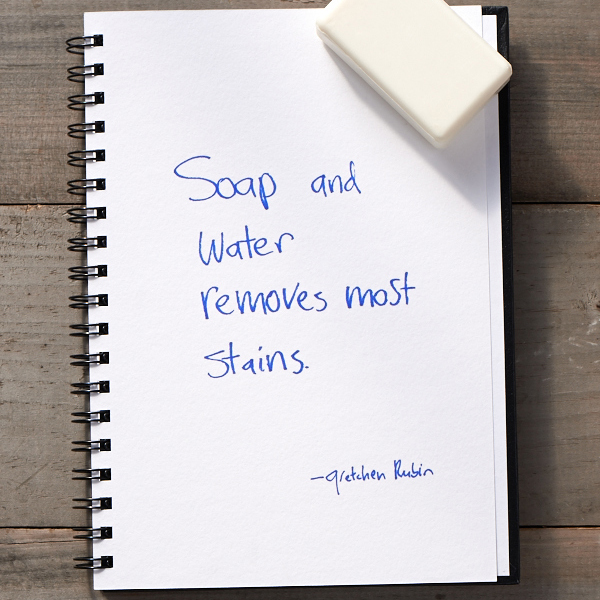 Soap and
Water
removes most
Stains.
-gretchen Rubin